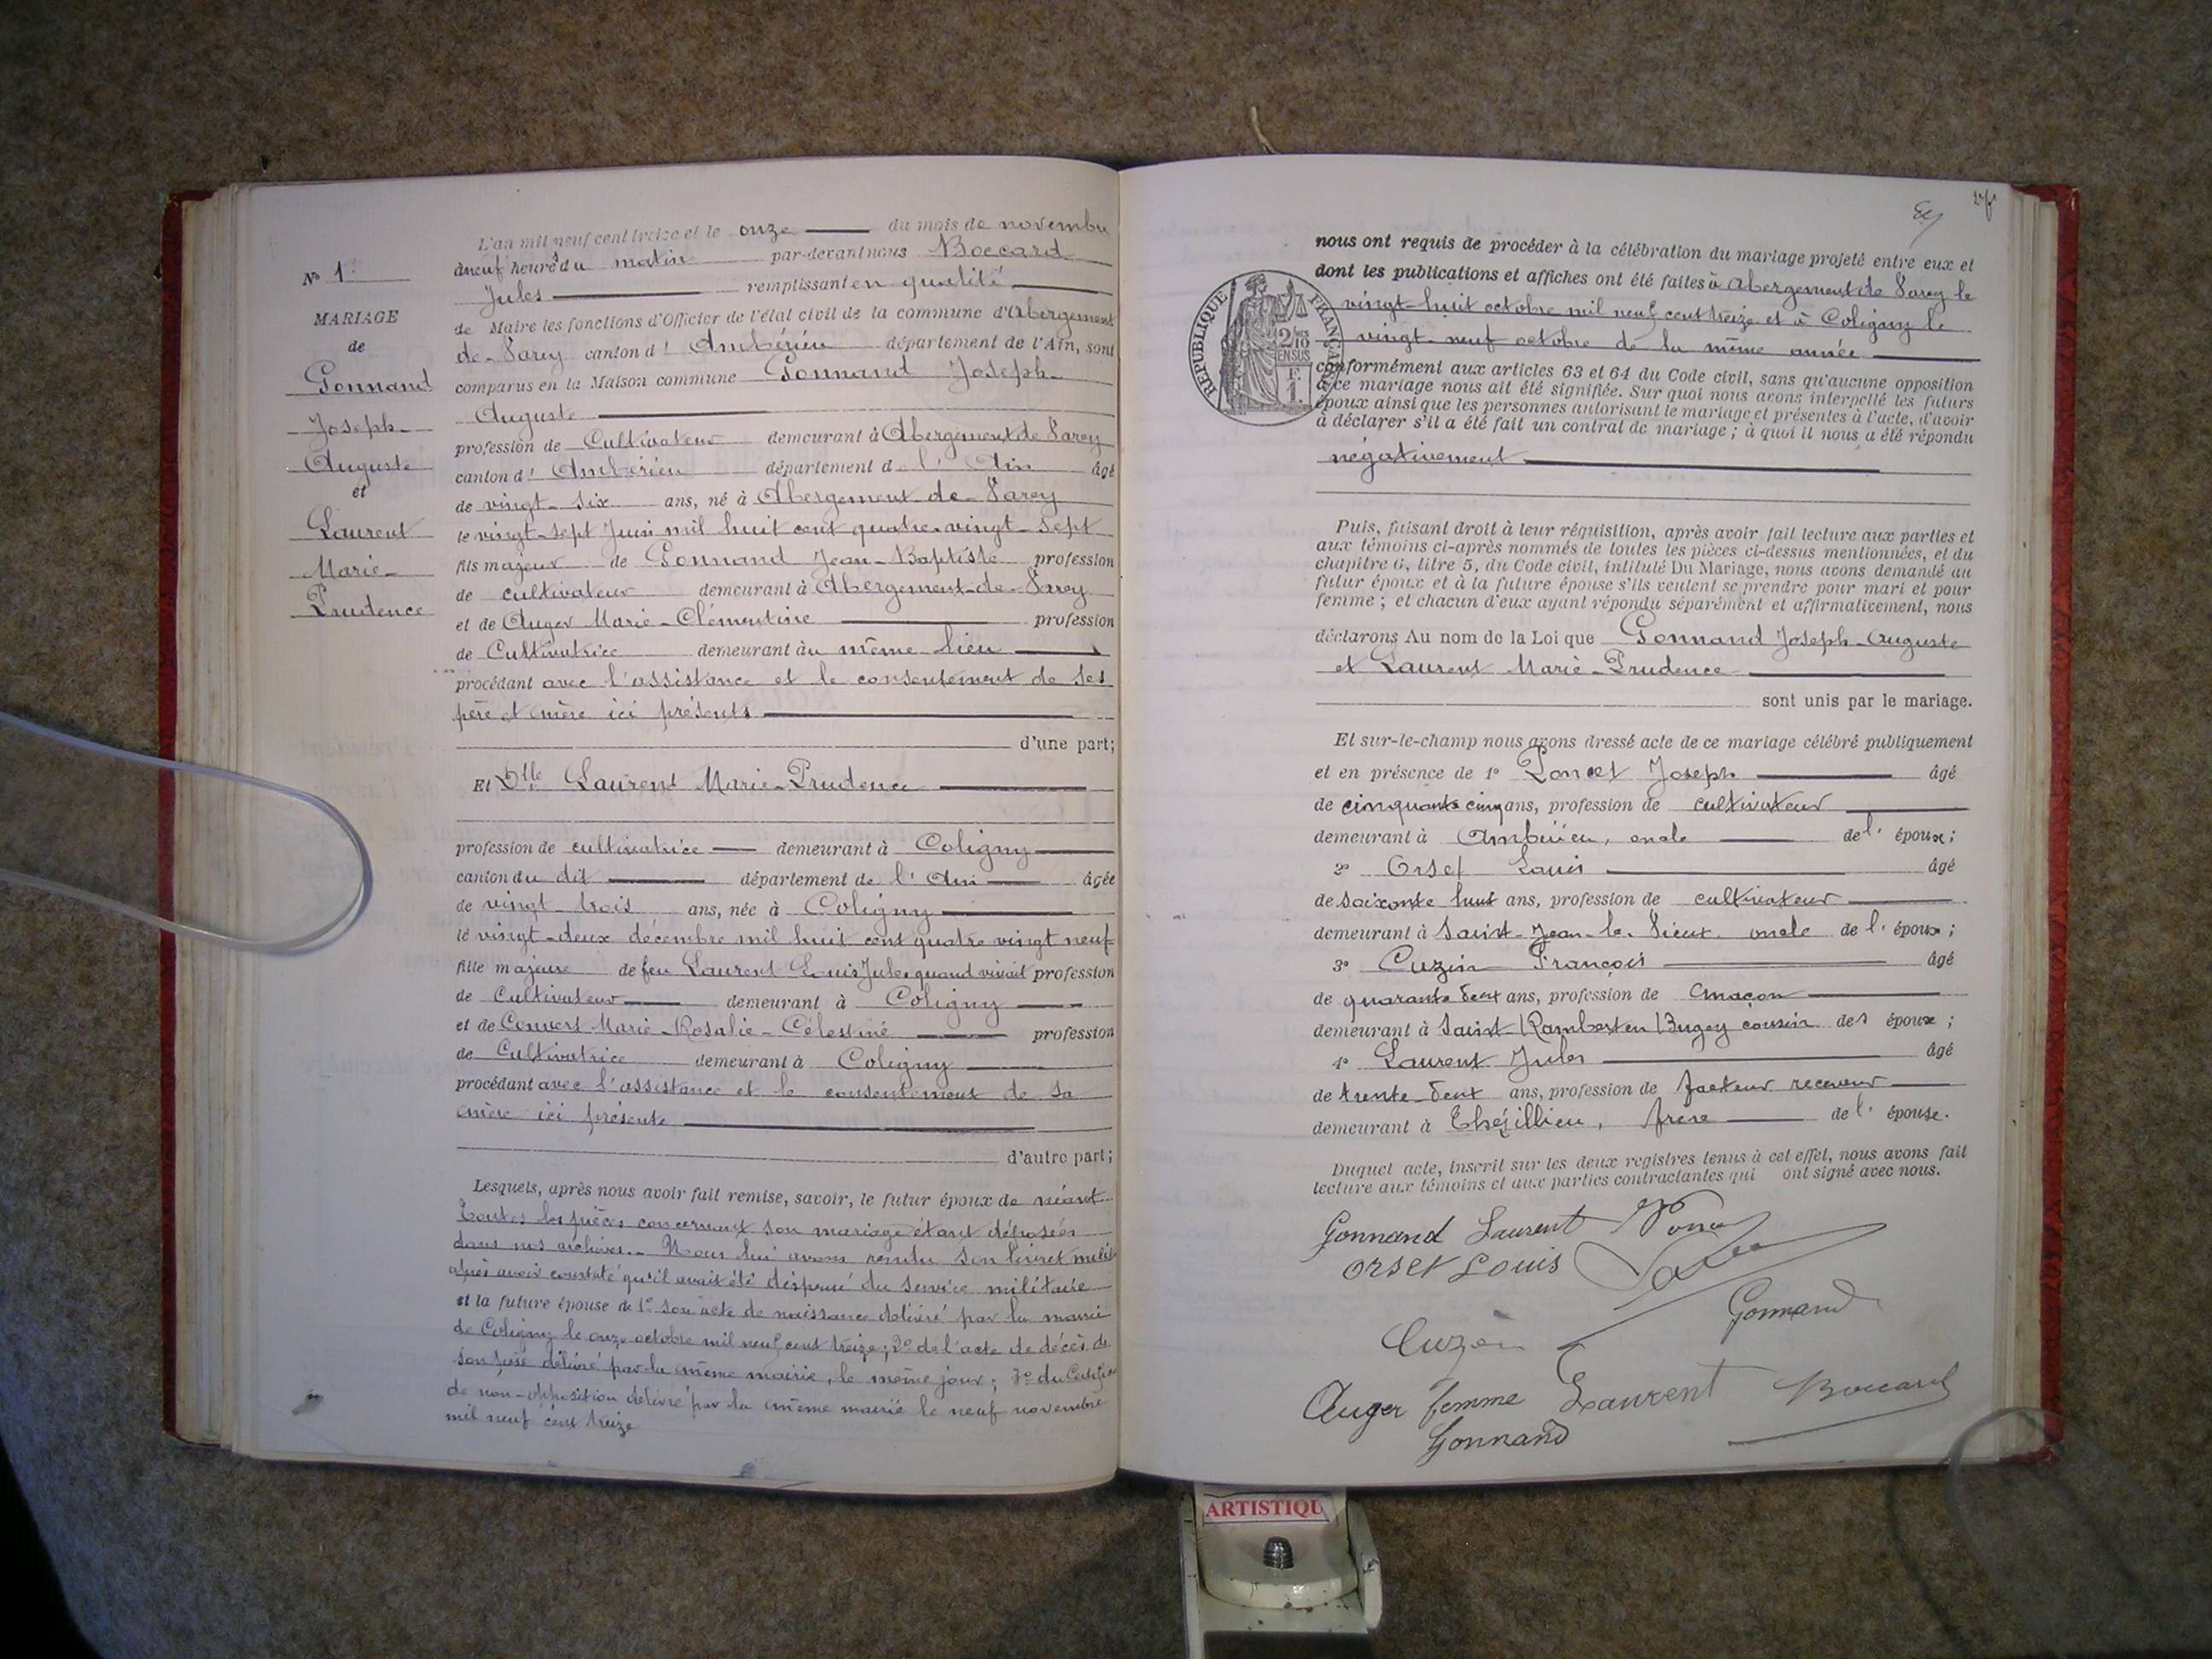 L'an mil neuf cent treize et le onze du mois de novembre
à neuf heures du matin par-devant nous Boccard
Jules remplissant en qualité
de Maire les fonctions d'Officier de l'état civil de la commune d'Abergement
de-Varey canton d' Ambérieu département de l'Ain, sont
comparus en la Maison commune Gonnand Joseph-
Auguste
profession de Cultivateur demeurant à Abergement de Varey
canton d' Ambérieu département de l' Ain âgé
de vingt-six ans, né à Abergement-de-Varey
le vingt-sept Juin mil huit cent quatre-vingt-sept
fils majeur de Gonnand Jean-Baptiste profession
de cultivateur demeurant à Abergement-de-Varey
et de Auger Marie-Clémentine profession
de Cultivatrice demeurant au même lieu
procédant avec l'assistance et le consentement de ses
père et mère ici présents
d'une part;
Et Dlle Laurent Marie-Prudence
profession de cultivatrice demeurant à Coligny
canton du dit département de l' Ain âgée
de vingt-trois ans, née à Coligny
le vingt-deux décembre mil huit cent quatre vingt neuf
fille majeure de feu Laurent Louis Jules quand vivait profession
de Cultivateur demeurant à Coligny
et de Convert Marie-Rosalie-Célestine profession
de Cultivatrice demeurant à Coligny
procédant avec l'assistance et le consentement de sa
mère ici présente
d'autre part;
Lesquels, après nous avoir fait remise, savoir, le futur époux de néant
Toutes les pièces concernant son mariage étant déposées
dans nos archives.- Nous lui avons rendu son livret
après avoir constaté qu'il avait été dispensé du service militaire
et la future épouse de 1° son acte de naissance délivré par la mairie
de Coligny le onze octobre mil neuf cent treize; 2° de l'acte de décès de
son père délivré par la même mairie, le même jour; 3° du
de non-opposition délivré par la même mairie le neuf novembre
mil neuf cent treize
N° 1
MARIAGE
de
Gonnand
Joseph-
Auguste
et
Laurent
Marie-
Prudence
nous ont requis de procéder à la célébration du mariage projeté entre eux et
dont les publications et affiches ont été faites à Abergement de Varey le
vingt-huit octobre mil neuf cent treize et à Coligny le
vingt-neuf octobre de la même année
conformément aux articles 63 et 64 du Code civil, sans qu'aucune opposition
à ce mariage nous ait été signifiée. Sur quoi nous avons interpellé les futurs
époux ainsi que les personnes autorisant le mariage et présentes à l'acte, d'avoir
à déclarer s'il a été fait un contrat de mariage; à quoi il nous a été répondu
négativement
RÉPUBLIQUE FRANÇAISE
2/10
EN SUS
F.
1.
Puis, faisant droit à leur réquisition, après avoir fait lecture aux parties et
aux témoins ci-après nommés de toutes les pièces ci-dessus mentionnées, et du
chapitre 6, titre 5, du Code civil, intitulé Du Mariage, nous avons demandé au
futur époux et à la future épouse s'ils veulent se prendre pour mari et pour
femme; et chacun d'eux ayant répondu séparément et affirmativement, nous
déclarons Au nom de la Loi que Gonnand Joseph-Auguste
et Laurent Marie-Prudence
sont unis par le mariage.
Et sur-le-champ nous avons dressé acte de ce mariage célébré publiquement
et en présence de 1° Poncet Joseph âgé
de cinquante cinq ans, profession de cultivateur
demeurant à Ambérieu, oncle de l' époux;
2° Orset Louis âgé
de soixante huit ans, profession de cultivateur
demeurant à Saint-Jean-le-Vieux, oncle de l' époux;
3° Cuzin François âgé
de quarante deux ans, profession de maçon
demeurant à Saint-Rambert en Bugey cousin des époux;
4° Laurent Jules âgé
de trente-deux ans, profession de facteur receveur
demeurant à Thézillieu, frère de l' épouse.
Duquel acte, inscrit sur les deux registres tenus à cet effet, nous avons fait
lecture aux témoins et aux parties contractantes qui ont signé avec nous.
Gonnand Laurent
Orset Louis
Gonnand
Cuzin
Auger femme Laurent Boccard
Gonnand
ARTISTIQU